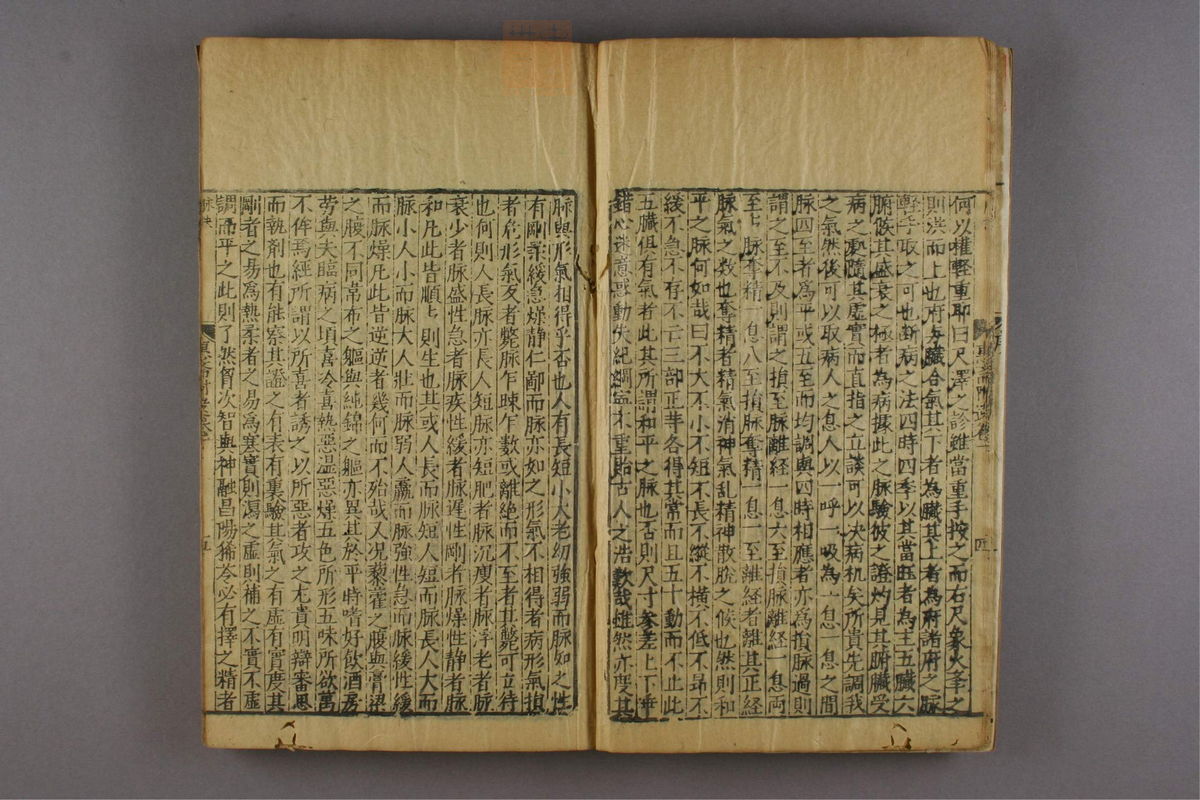 何以權輕重耶曰尺澤之診雖當重手按之而右尺象火筆之
則洪而上也府与臓合氣其下者為臓其上者為府諸府之脉
輕手取之可也断病之法四時四季以其當旺者為主五臓六
腑候其盛衰之極者為病據此之脉驗彼之證灼見其腑臓受
病之處隨其虛實而直指之立談可以决病机矣所貴先調我
之氣然後可以取病人之息人以一呼一吸為一息一息之間
脉四至者爲平或五至而均調與四時相應者亦爲損脉過則
謂之至不及則謂之損至脉離經一息六至損脉離經一息两
至至脉奪精一息八至損脉奪精一息一至離經者離其正經
脉氣之数也奪精者精氣消神氣乱精神散脫之候也然則和
平之脉何如哉曰不大不小不短不長不縱不橫不低不昻不
緩不急不存不亡三部正等各得其常而且五十動而不止此
五臓俱有氣者此其所謂和平之脉也否則尺寸參差上下乖
錯心迷意惑動失紀綱寧不重貽古人之浩歎哉雖然亦度其
脉與形氣相得乎否也人有長短小大老幼強弱而脉如之性
有剛柔緩急燥静仁鄙而脉亦如之形氣不相得者病形氣損
者危形氣反者斃脉乍疎乍數或離絶而不至者其斃可立待
也何則人長脉亦長人短脉亦短肥者脉沉瘦者脉浮老者脉
衰少者脉盛性急者脉疾性緩者脉遲性剛者脉燥性静者脉
和凡此皆順順則生也其或人長而脉短人短而脉長人大而
脉小人小而脉大人壯而脉弱人羸而脉強性急而脉緩性緩
而脉燥凡此皆逆逆者幾何而不殆哉又况藜藿之腹與膏粱
之腹不同常布之軀與純錦之軀亦異其於平時嗜好飲酒房
勞與夫臨病之頃喜冷喜熱惡温惡燥五色所形五味所欲萬
不侔焉經所謂以所喜者誘之以所惡者攻之尤貴明辯審思
而執劑也有能察其證之有表有裏驗其氣之有虛有實度其
剛者之易爲熱柔者之易爲寒實則瀉之虛則補之不實不虛
調而平之此則了然胷次智與神融昌陽豨苓必有擇之精者